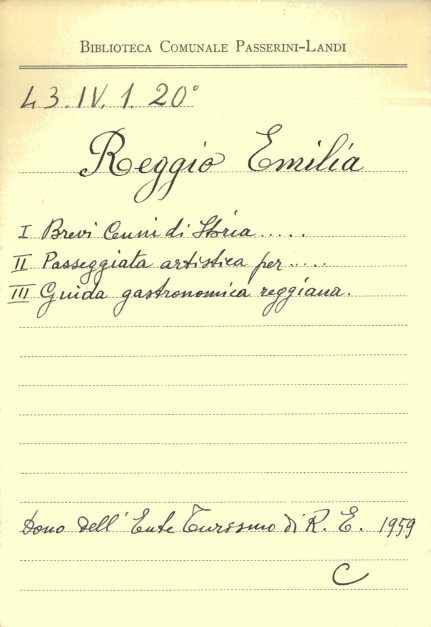 Biblioteca Comunale Passerini-Landi
L 3. IV. 1. 20°
Reggio Emilia
I Brevi Cenni di Storia.....
II Passeggiata artistica per.....
III Guida gastronomica reggiana.
Dono dell' Ente Turismo di R. E. 1959
C